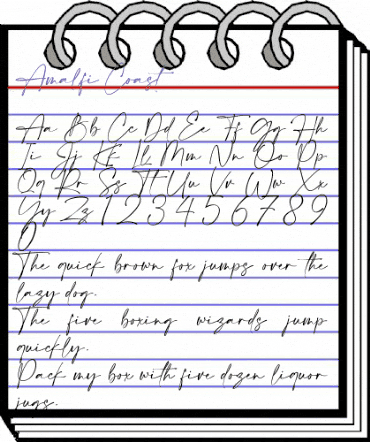 Amalfi Coast
Aa Bb Cc Dd Ee Ff Gg Hh
Ii Jj Kk Ll Mm Nn Oo Pp
Qq Rr Ss Tt Uu Vv Ww Xx
Yy Zz 1 2 3 4 5 6 7 8 9
0
The quick brown fox jumps over the
lazy dog.
The five boxing wizards jump
quickly.
Pack my box with five dozen liquor
jugs.